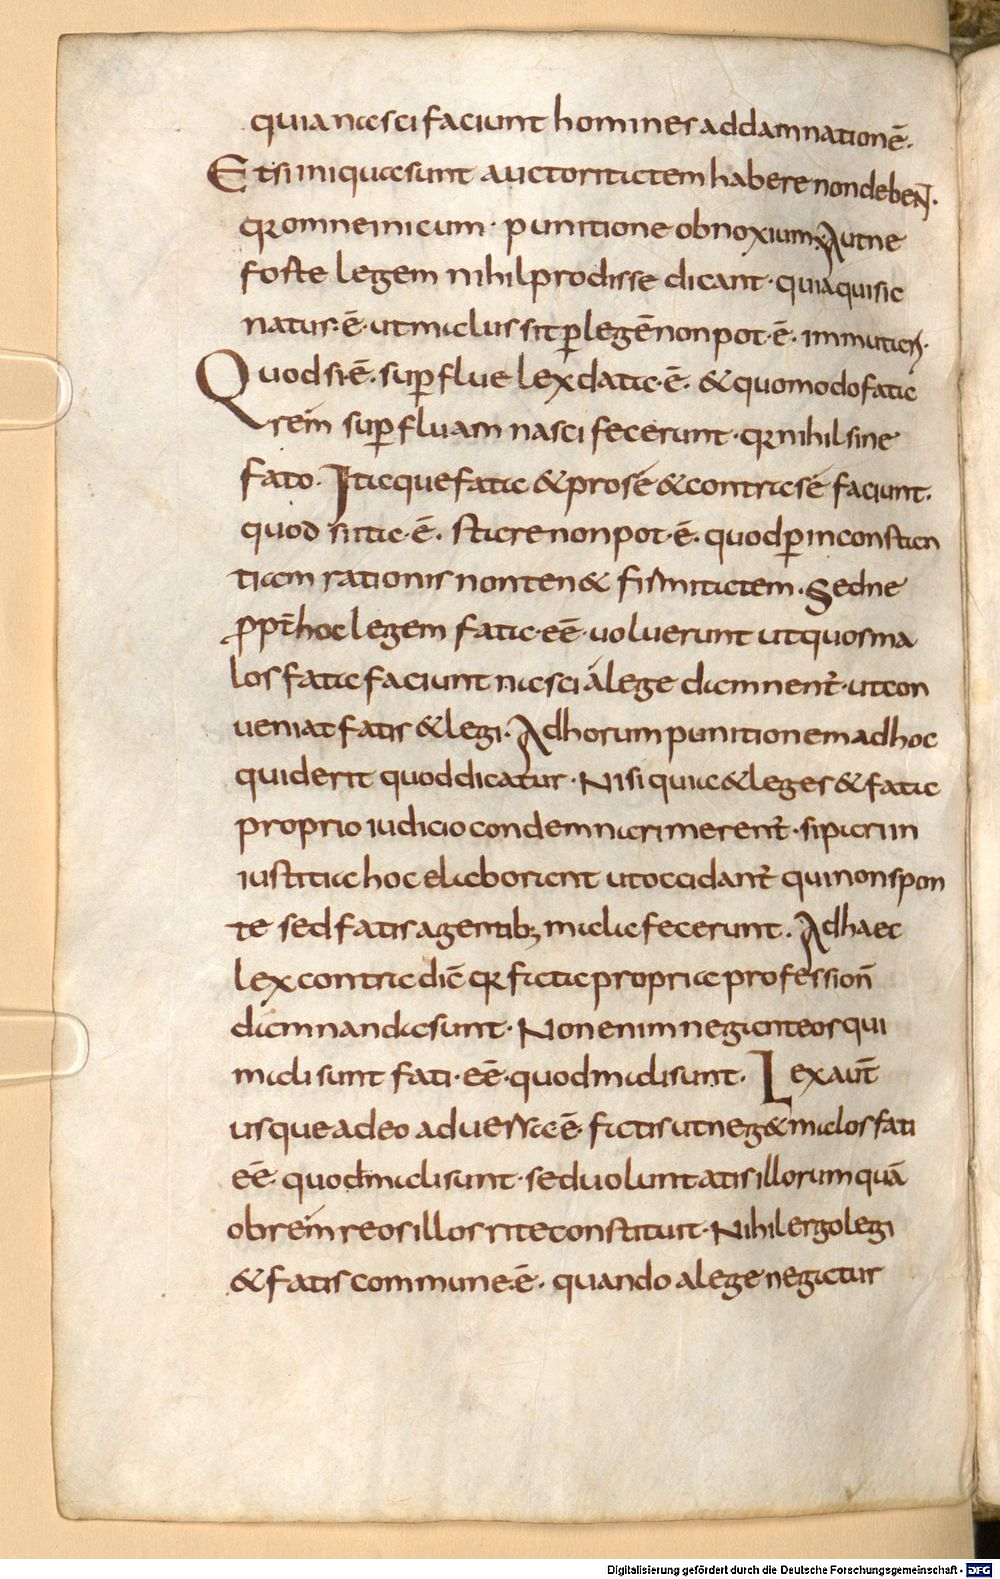 quia nasci faciunt homines ad damnationē.
Et si iniqua sunt auctoritatem habere non debeN̄.
qr omne inicum · punitione obnoxium. Aut ne
foste legem nihil prodisse dicant · quia qui sic
natus · ē · ut malus sit ꝑ legē non pot · ē · immutari.
Quod si · ē · suꝑflue lex data · ē · & quomodo fata
rem̄ suꝑfluam nasci fecerunt · qr nihil sine
fato. Itaque fata & pro sé & contra sé faciunt.
quod si ita · ē · stare non pot · ē · quod ꝑ inconstan
tiam rationis non ten& firmitatem. Sed ne
ꝓpt̄ hoc legem fata · eē · uoluerunt ut quos ma
los fata faciunt nasci á lege damnent̄ · ut con
ueniat fatis & legi. Ad horum punitionem ad hoc
quid erit quod dicatur · Nisi quia & leges & fata
proprio iudicio condemnari merent̄ · si pari in
iustitia hoc elaborant ut occidant̄ qui non spon
te sed fatis agentib; mala fecerunt. Ad haec
lex contradic̄ qr facta propria profession̄
damnanda sunt · Non enim negant eos qui
mali sunt fati · eē · quod mali sunt. Lex aut̄
usque adeo aduersa ē · factis ut neg& malos fati
eē · quod mali sunt · sed uoluntatis illorum quā
ob rem̄ reos illos rite constituit · Nihil ergo legi
& fatis commune · ē · quando a lege negatur
Digitalisierung gefördert durch die Deutsche Forschungsgemeinschaft - DFG